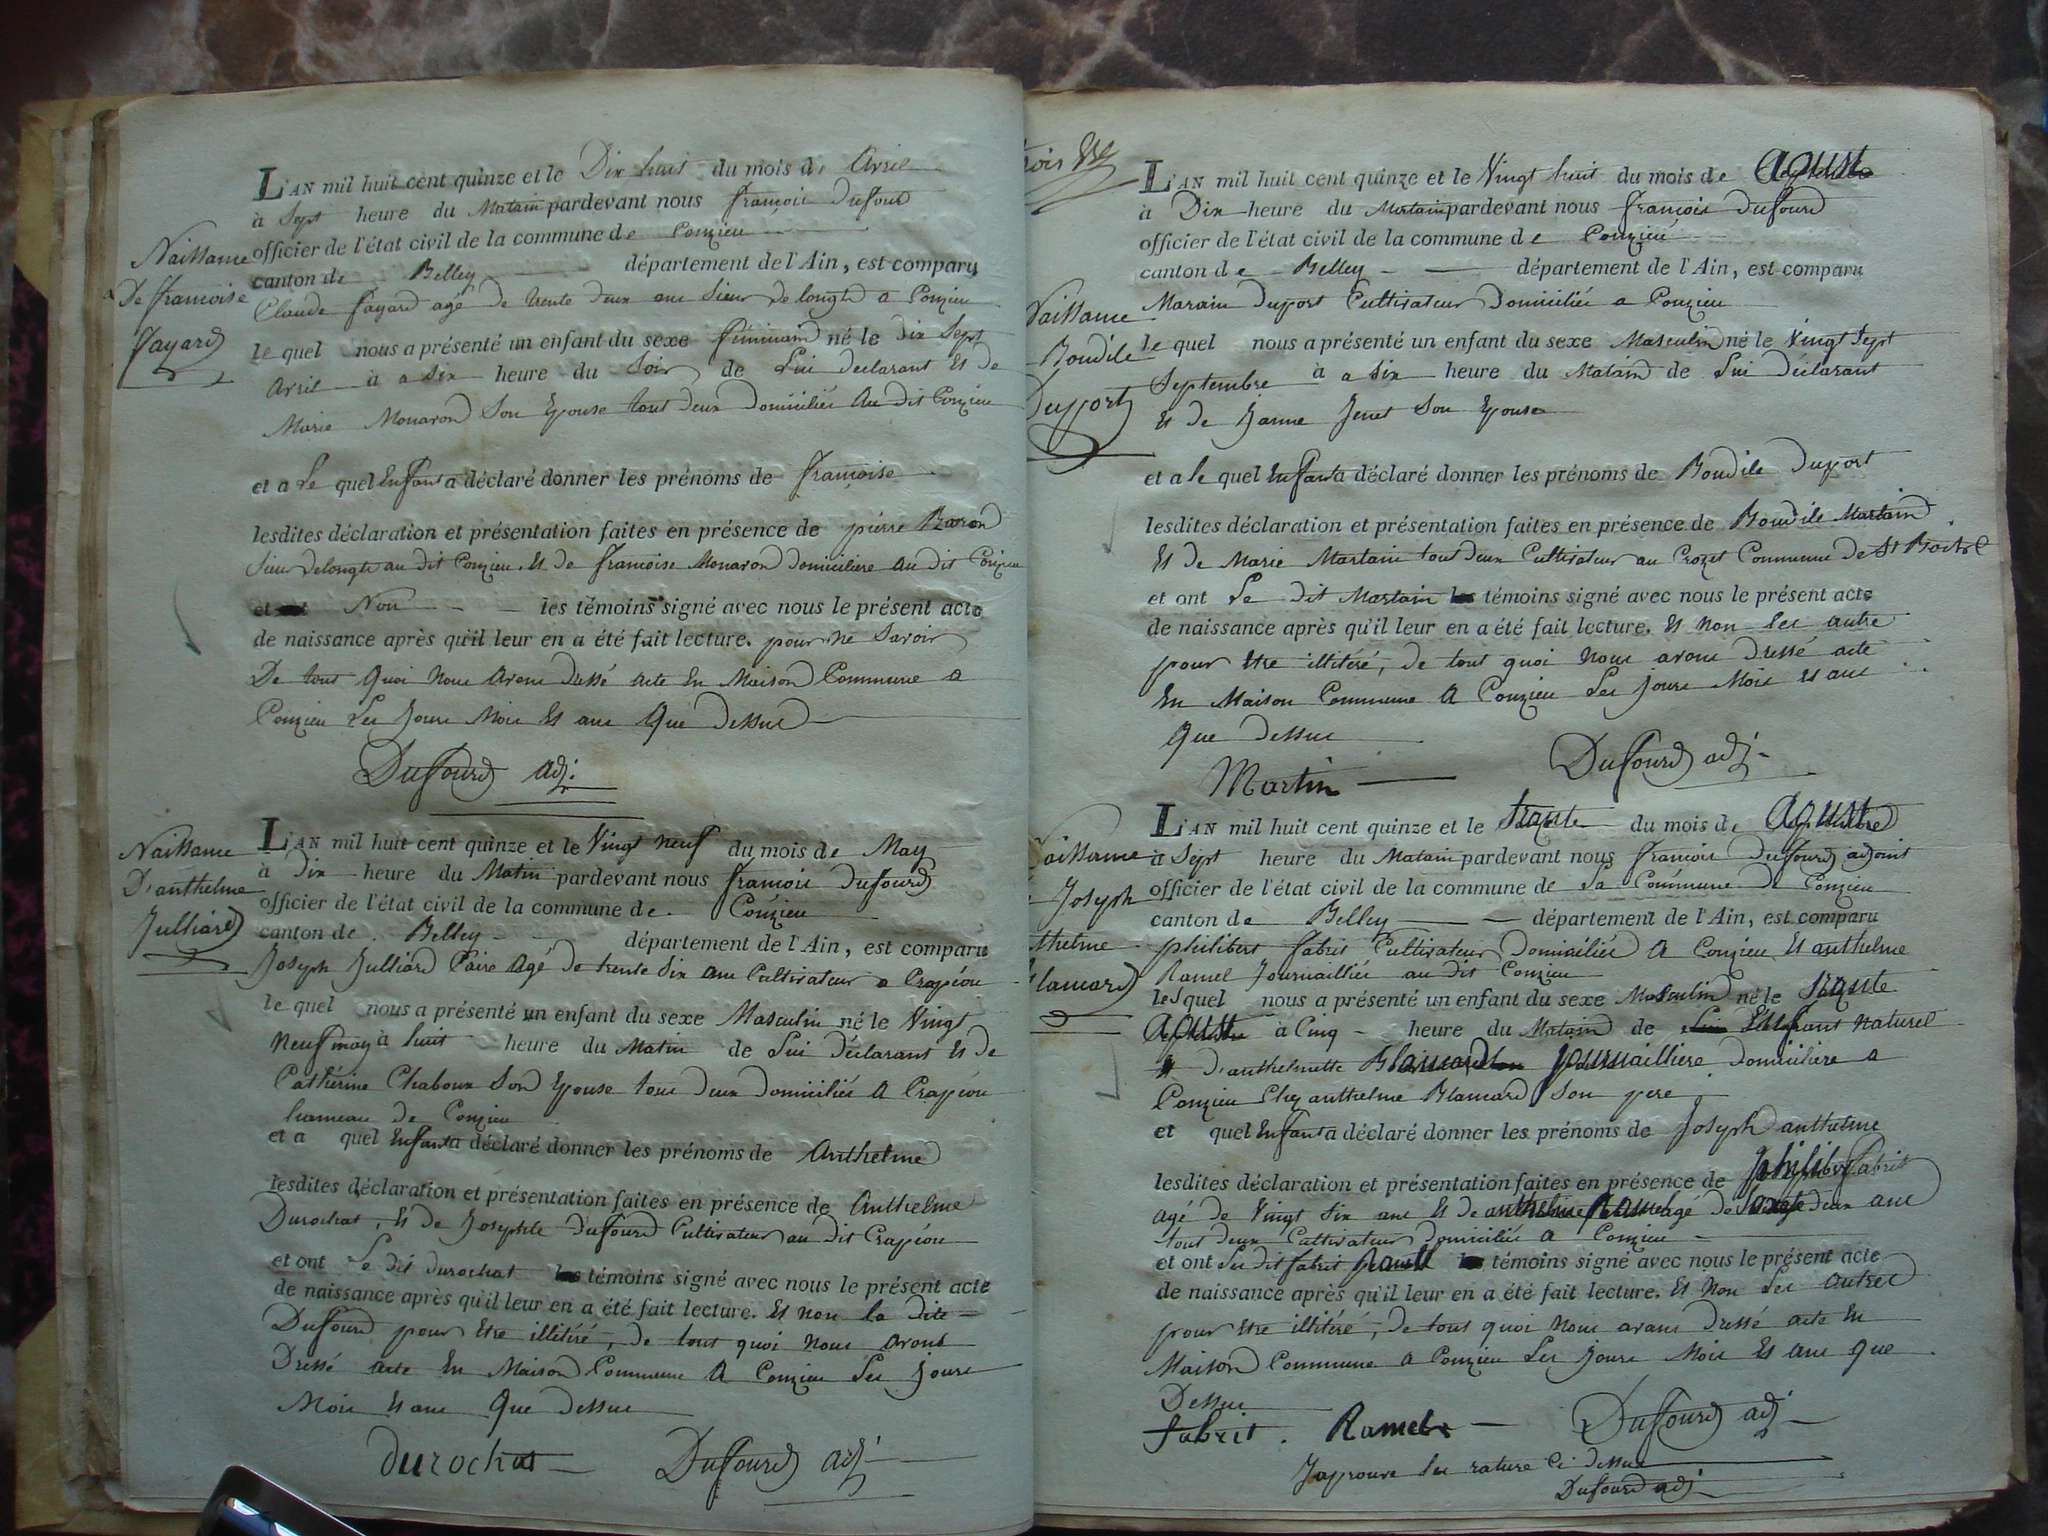 Naissance
De françoise
fayard
L'AN mil huit cent quinze et le Dix huit du mois de Avril
à Sept heure du Matain pardevant nous françois Dufourd
officier de l'état civil de la commune de Conzieu
canton de Belley département de l'Ain, est comparu
Claude fayard agé de trente deux ans Sieur de longt a Conzieu
le quel nous a présenté un enfant du sexe féminaind né le dix Sept
Avril à a Six heure du Soir de Lui déclarant Et de
Marie Monaron Son Epouse tout deux Domiciliés Au dit Conzieu
et a Le quel Enfant a déclaré donner les prénoms de françoise
lesdites déclaration et présentation faites en présence de pierre Baron
Sieur Delongt au dit Conzieu. Et de françoise Monaron domicilière au dit Conzieu
et Non les témoins signé avec nous le présent acte
de naissance après qu'il leur en a été fait lecture. pour ne Savoir
De tout Quoi Nous Avons dressé acte En Maison Commune a
Conzieu Les Jours Mois Et ans Que dessus
Duffourd adj.
Naissance
D'anthelme
Julliard
L'AN mil huit cent quinze et le Vingt neuf du mois de May
à Dix heure du Matin pardevant nous françois Dufourd
officier de l'état civil de la commune de Conzieu
canton de Belley département de l'Ain, est comparu
Joseph Julliard Paire Agé de trente Six ans Cultivateur a Crapéou
le quel nous a présenté un enfant du sexe Masculin né le Vingt
Neuf may à huit heure du Matin de Lui déclarant Et de
Cathérine Chaboux Son Epouse tous deux domiciliés A Crapéou
hameau de Conzieu
et a quel Enfant a déclaré donner les prénoms de Anthelme
lesdites déclaration et présentation faites en présence de Anthelme
Durochat, Et de Josephte Dufourd Cultivateur au dit Crapéou
et ont Le dit durochat les témoins signé avec nous le présent acte
de naissance après qu'il leur en a été fait lecture. Et non la dite
Duffourd pour Etre illitéré, de tout quoi Nous avons
Dressé acte En Maison Commune A Conzieu Les Jours
Mois Et ans Que dessus
durochat Duffourd adj
Naissance
Boudile
Duport
L'AN mil huit cent quinze et le Vingt huit du mois de Agoust
à Dix heure du Matain pardevant nous françois Dufourd
officier de l'état civil de la commune de Conzieu
canton de Belley département de l'Ain, est comparu
Marain Duport Cultivateur Domiciliée a Conzieu
le quel nous a présenté un enfant du sexe Masculin né le Vingt Sept
Septembre à a Six heure du Mataind de Lui Déclarant
Et de Janne Jenet Son Epouse
et a le quel Enfant a déclaré donner les prénoms de Boudile Duport
lesdites déclaration et présentation faites en présence de Boudile Martain
Et de Marie Martain tout deux Cultivateur au Crozet Commune de St
et ont Le dit Martain les témoins signé avec nous le présent acte
de naissance après qu'il leur en a été fait lecture. Et non les autre
pour Etre illitéré, de tout quoi Nous avons dressé acte
En Maison Commune A Conzieu Les Jours Mois Et ans
Que dessus
Martin Duffourd adj
Naissance
Joseph
thelme
lamard
L'AN mil huit cent quinze et le trante du mois de Agoust
à Sept heure du Matain pardevant nous françois Duffourd adjoint
officier de l'état civil de la commune de La Commune de Conzieu
canton de Belley département de l'Ain, est comparu
philibert fabrit Cultivateur Domiciliée A Conzieu, Et anthelme
Ramel Journaillié au dit Conzieu
les quel nous a présenté un enfant du sexe Masculin né le trante
Agoust à Cinq heure du Mataind de Enfant naturel
d'anthelmette Blamard journailliere domicilière a
Conzieu Chez anthelme Blamard Son pere
et quel Enfant a déclaré donner les prénoms de Joseph anthelme
lesdites déclaration et présentation faites en présence de philibert fabrit
agé de Vingt Six ans Et de anthelme Ramel agé de deux ans
tout deux Cultivateur domiciliée A Conzieu
et ont Les dit fabrit Ramel les témoins signé avec nous le présent acte
de naissance après qu'il leur en a été fait lecture. Et Non Les Autres
pour Etre illitéré, de tout quoi nous avans dressé acte En
Maison Commune a Conzieu Les Jours Mois Et ans Que
Dessus
fabrit. Ramel Duffourd adj
Japrouve Les rature Ci dessus
Dufourd adj